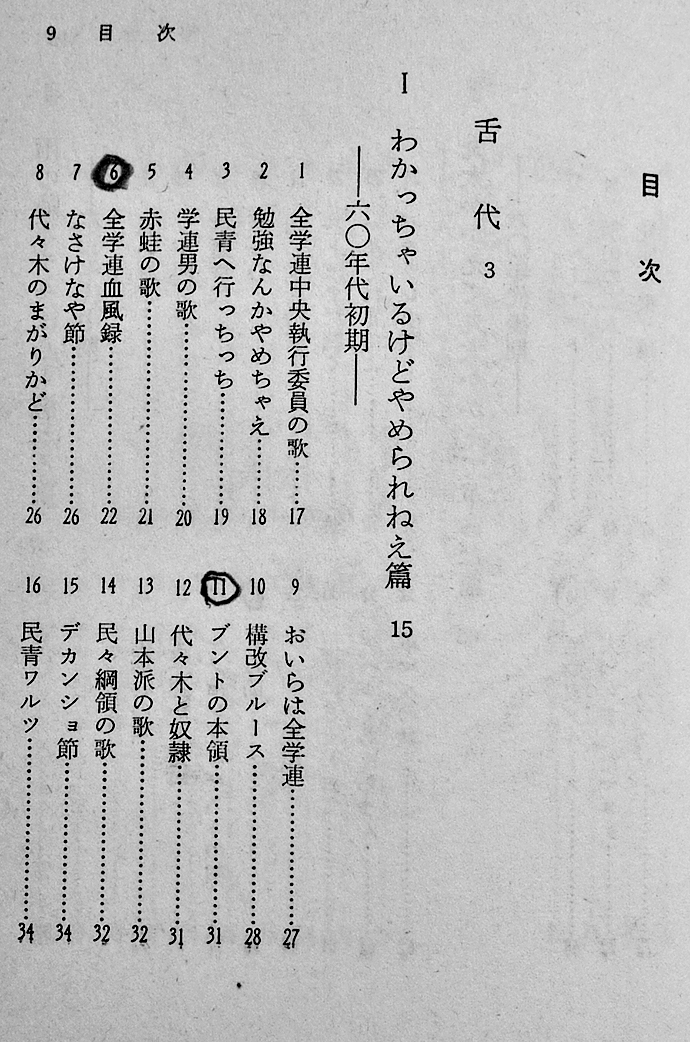 9 目 次
目 次
舌 代 3
Ⅰ わかっちゃいるけどやめられねえ篇 15
――六〇年代初期――
1 全学連中央執行委員の歌……17
2 勉強なんかやめちゃえ……18
3 民青へ行っちっち……19
4 学連男の歌……20
5 赤蛙の歌……21
6 全学連血風録……22
7 なさけなや節……26
8 代々木のまがりかど……26
9 おいらは全学連……27
10 構改ブルース……28
11 ブントの本領……31
12 代々木と奴隷……31
13 山本派の歌……32
14 民々綱領の歌……32
15 デカンショ節……34
16 民青ワルツ……34